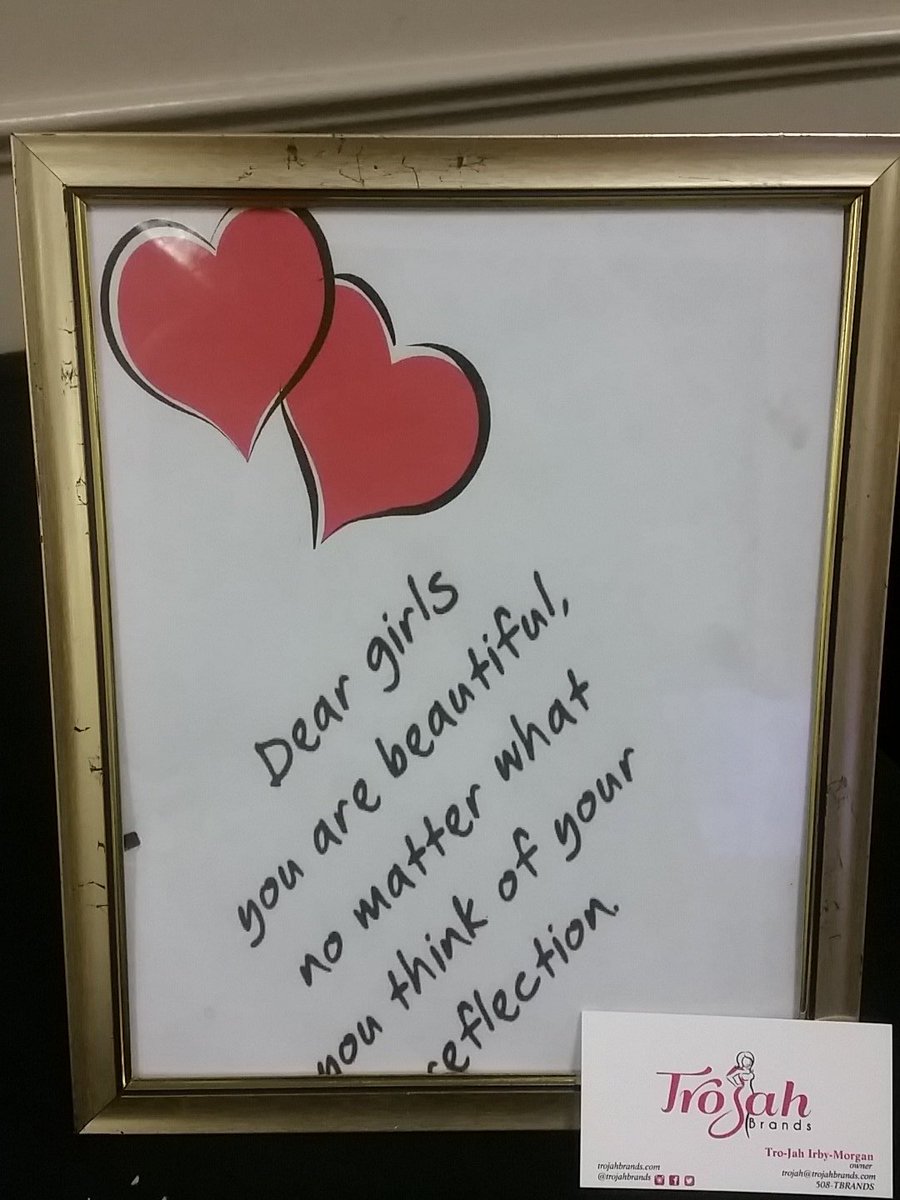 Dear girls
you are beautiful,
no matter what
you think of your
reflection.
TroJah
Brands
Tro-Jah Irby-Morgan
owner
trojahbrands.com
trojah@trojahbrands.com
@trojahbrands
508-TBRANDS